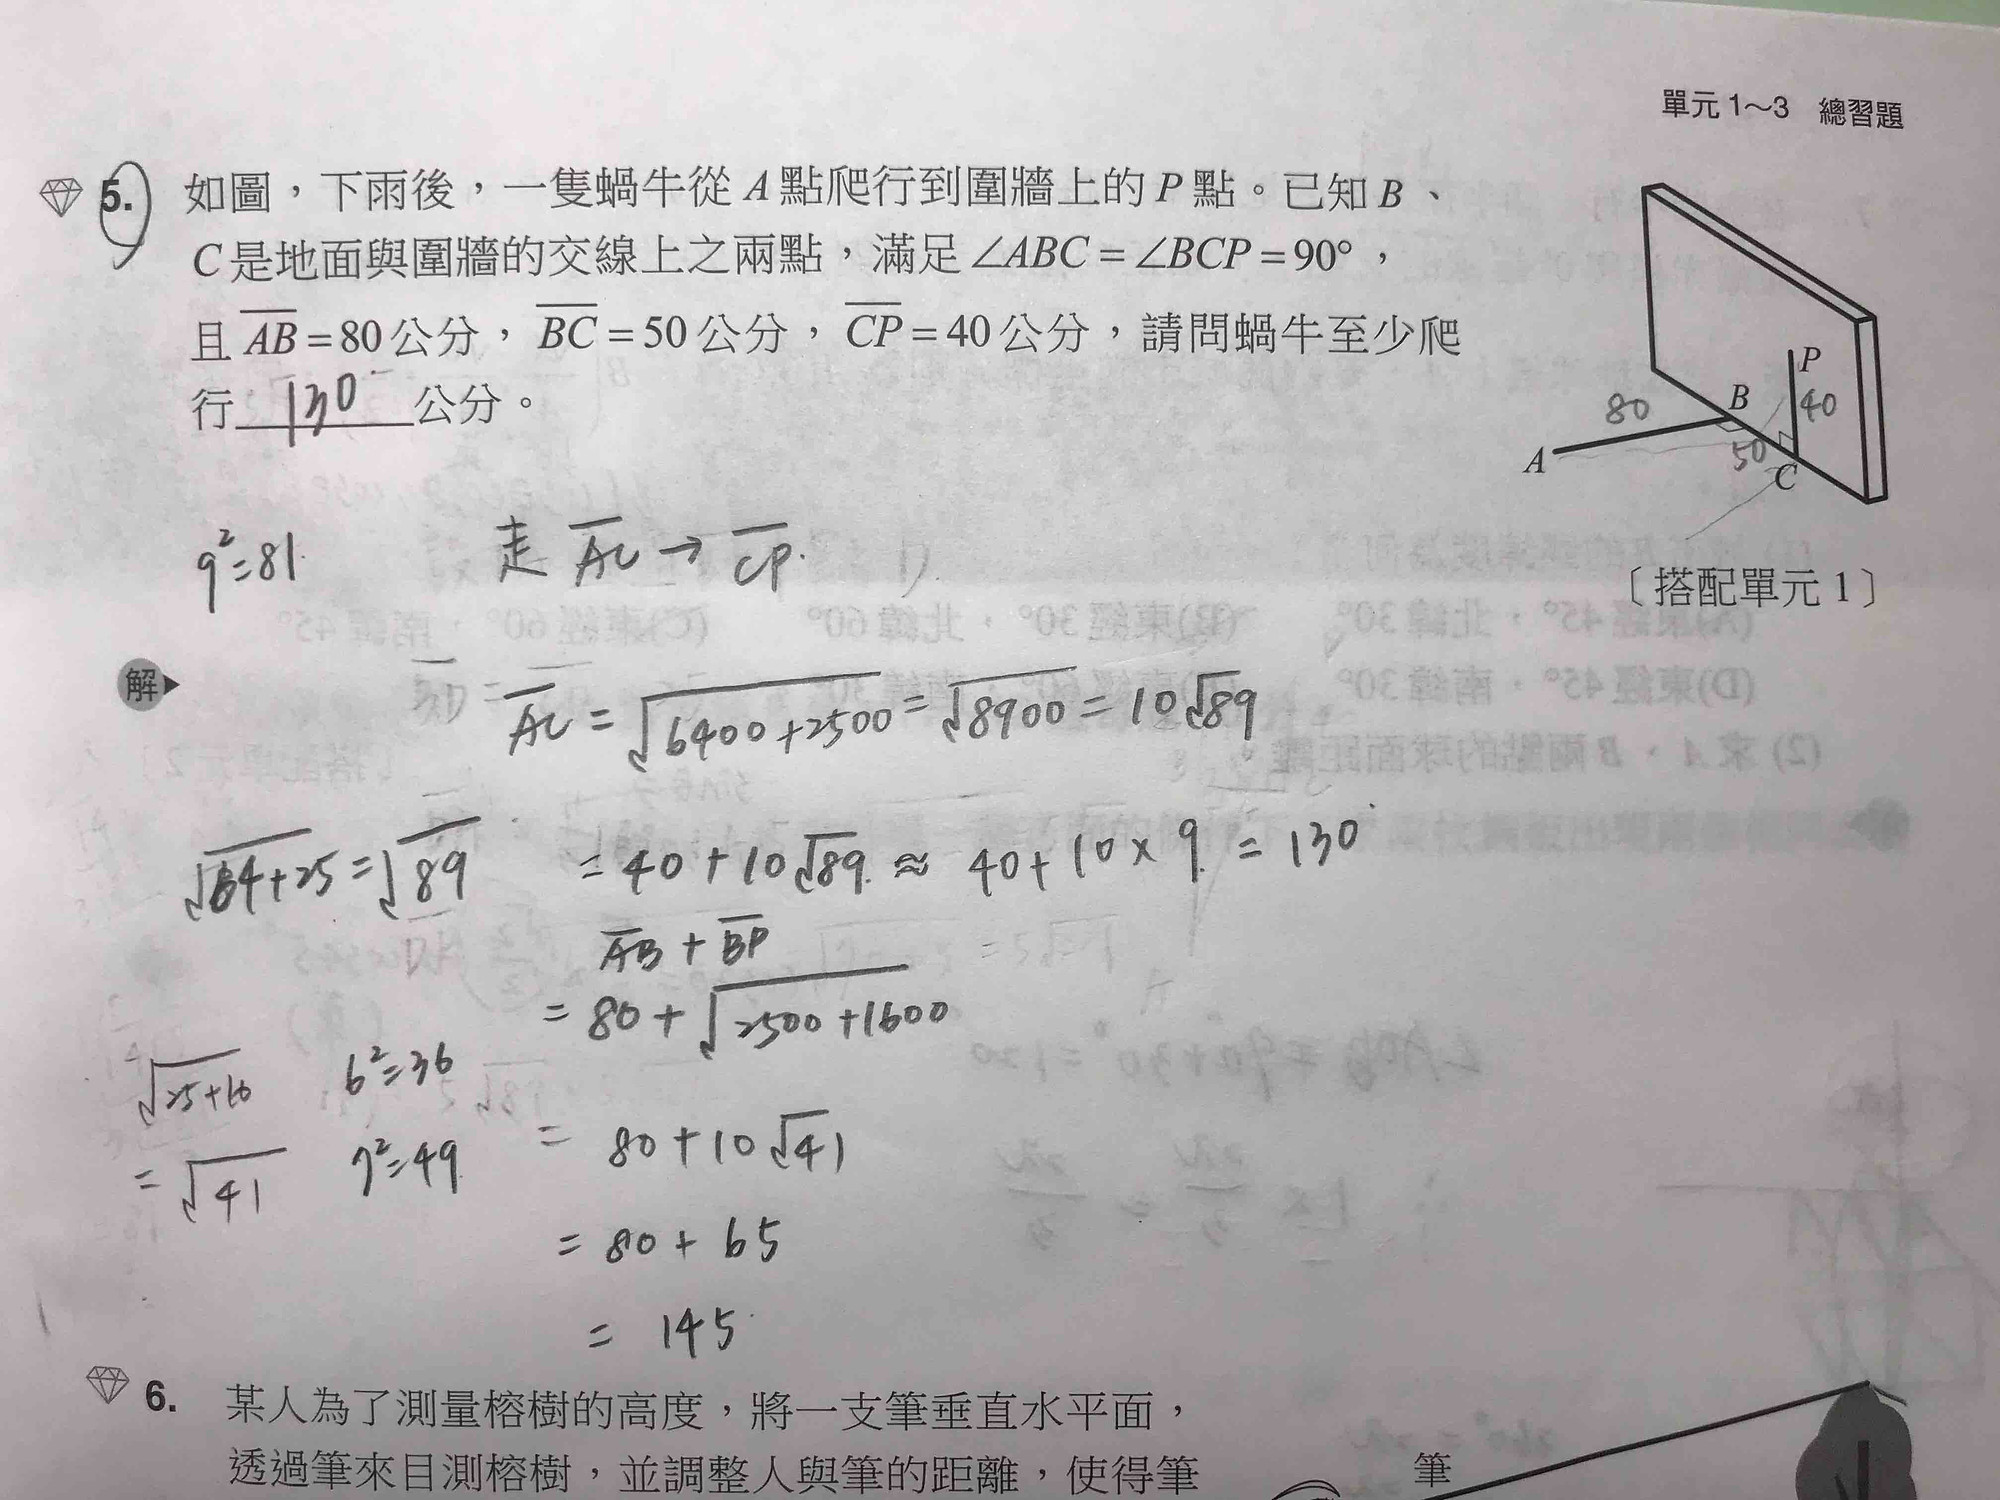 單元1～3 總習題
5. 如圖，下雨後，一隻蝸牛從A點爬行到圍牆上的P點。已知B、
C是地面與圍牆的交線上之兩點，滿足∠ABC=∠BCP=90°，
且AB=80公分，BC=50公分，CP=40公分，請問蝸牛至少爬
行 130 公分。
P
B
80
40
A
50
C
〔搭配單元1〕
9²=81
走 AC → CP.
解
AC = √6400+2500 = √8900 = 10√89
√64+25 = √89
= 40+10√89 ≈ 40+10×9 = 130
AB + BP
= 80 + √2500+1600
√25+16
6²=36
= √41
7²=49
= 80+10√41
= 80+65
= 145
6. 某人為了測量榕樹的高度，將一支筆垂直水平面，
透過筆來目測榕樹，並調整人與筆的距離，使得筆
筆